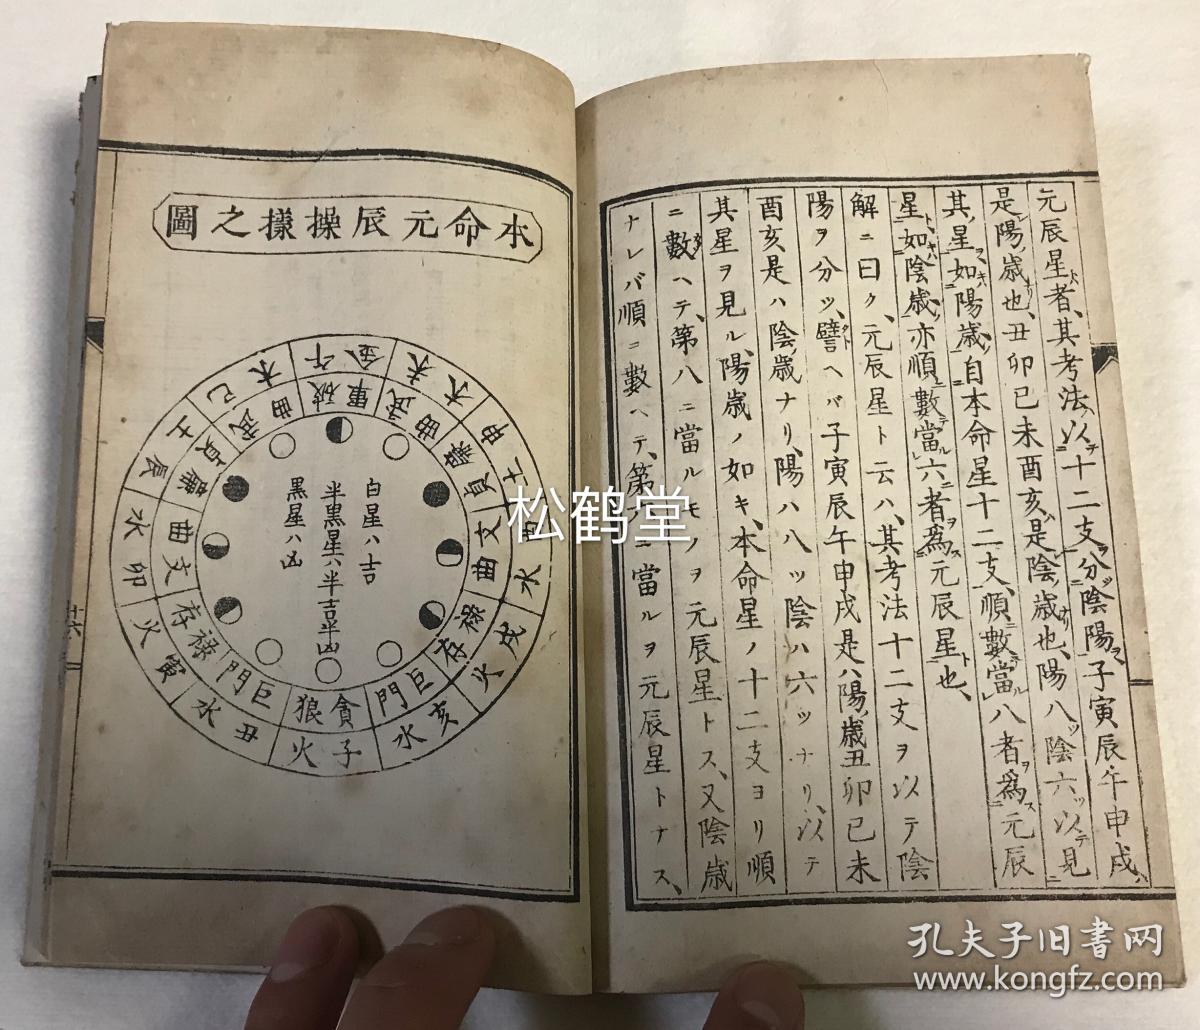 元辰星者、其考法、以テ十二支ヲ分ツ陰陽ヲ、子寅辰午申戌、
是陽歳也、丑卯巳未酉亥ハ是陰歳也、陽八ッ陰六ッ以テ見
其ノ星ヲ、如キハ陽歳ノ、自本命星十二支、順ニ數テ當ル八者ヲ為ス元辰
星ト、如キハ陰歳ノ、亦順ニ數テ當ル六ニ者ヲ為ス元辰星ト也、
解ニ曰ク、元辰星ト云ハ、其考法十二支ヲ以テ陰
陽ヲ分ツ、譬ヘバ子寅辰午申戌是ハ陽歳丑卯巳未
酉亥是ハ陰歳ナリ、陽ハ八ッ陰ハ六ッナリ、以テ
其星ヲ見ル、陽歳ノ如キ、本命星ノ十二支ヨリ順
ニ數ヘテ、第八ニ當ルモノヲ元辰星トス、又陰歳
ナレバ順ニ數ヘテ、第六ニ當ルヲ元辰星トナス、
本命元辰操㨾之圖
午金
破軍
未火
武曲
申土
廉貞
酉水
文曲
戌火
禄存
亥水
巨門
子火
貪狼
丑水
巨門
寅火
禄存
卯水
文曲
辰土
廉貞
巳木
武曲
白星ハ吉
半黒星ハ半吉半凶
黒星ハ凶
十六
松鹤堂
孔夫子旧书网
www.kongfz.com